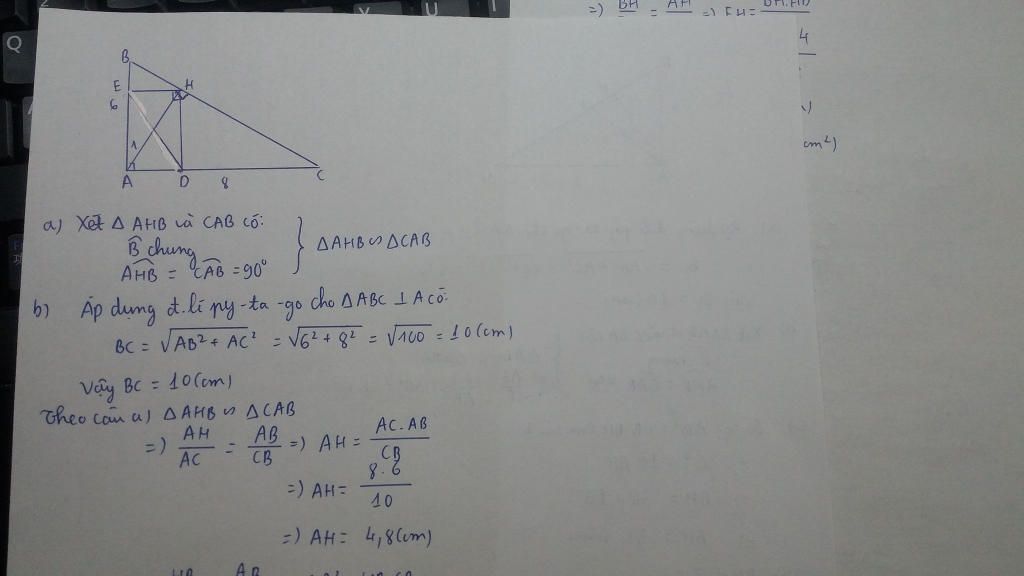 =) BH = AH =) EH = BH.HB
4
cm²)
Q
Y U I
B
E H
6
1
A D 8 C
a) Xét Δ AHB và CAB có:
B̂ chung
AHB = CAB = 90°
} ΔAHB ∽ ΔCAB
b) Áp dụng đ.lí py-ta-go cho ΔABC ⊥ A có:
BC = √AB² + AC² = √6² + 8² = √100 = 10 (cm)
Vậy BC = 10 (cm)
Theo câu a) ΔAHB ∽ ΔCAB
=) AH/AC = AB/CB =) AH = AC.AB/CB
=) AH = 8.6/10
=) AH = 4,8 (cm)
HB AB